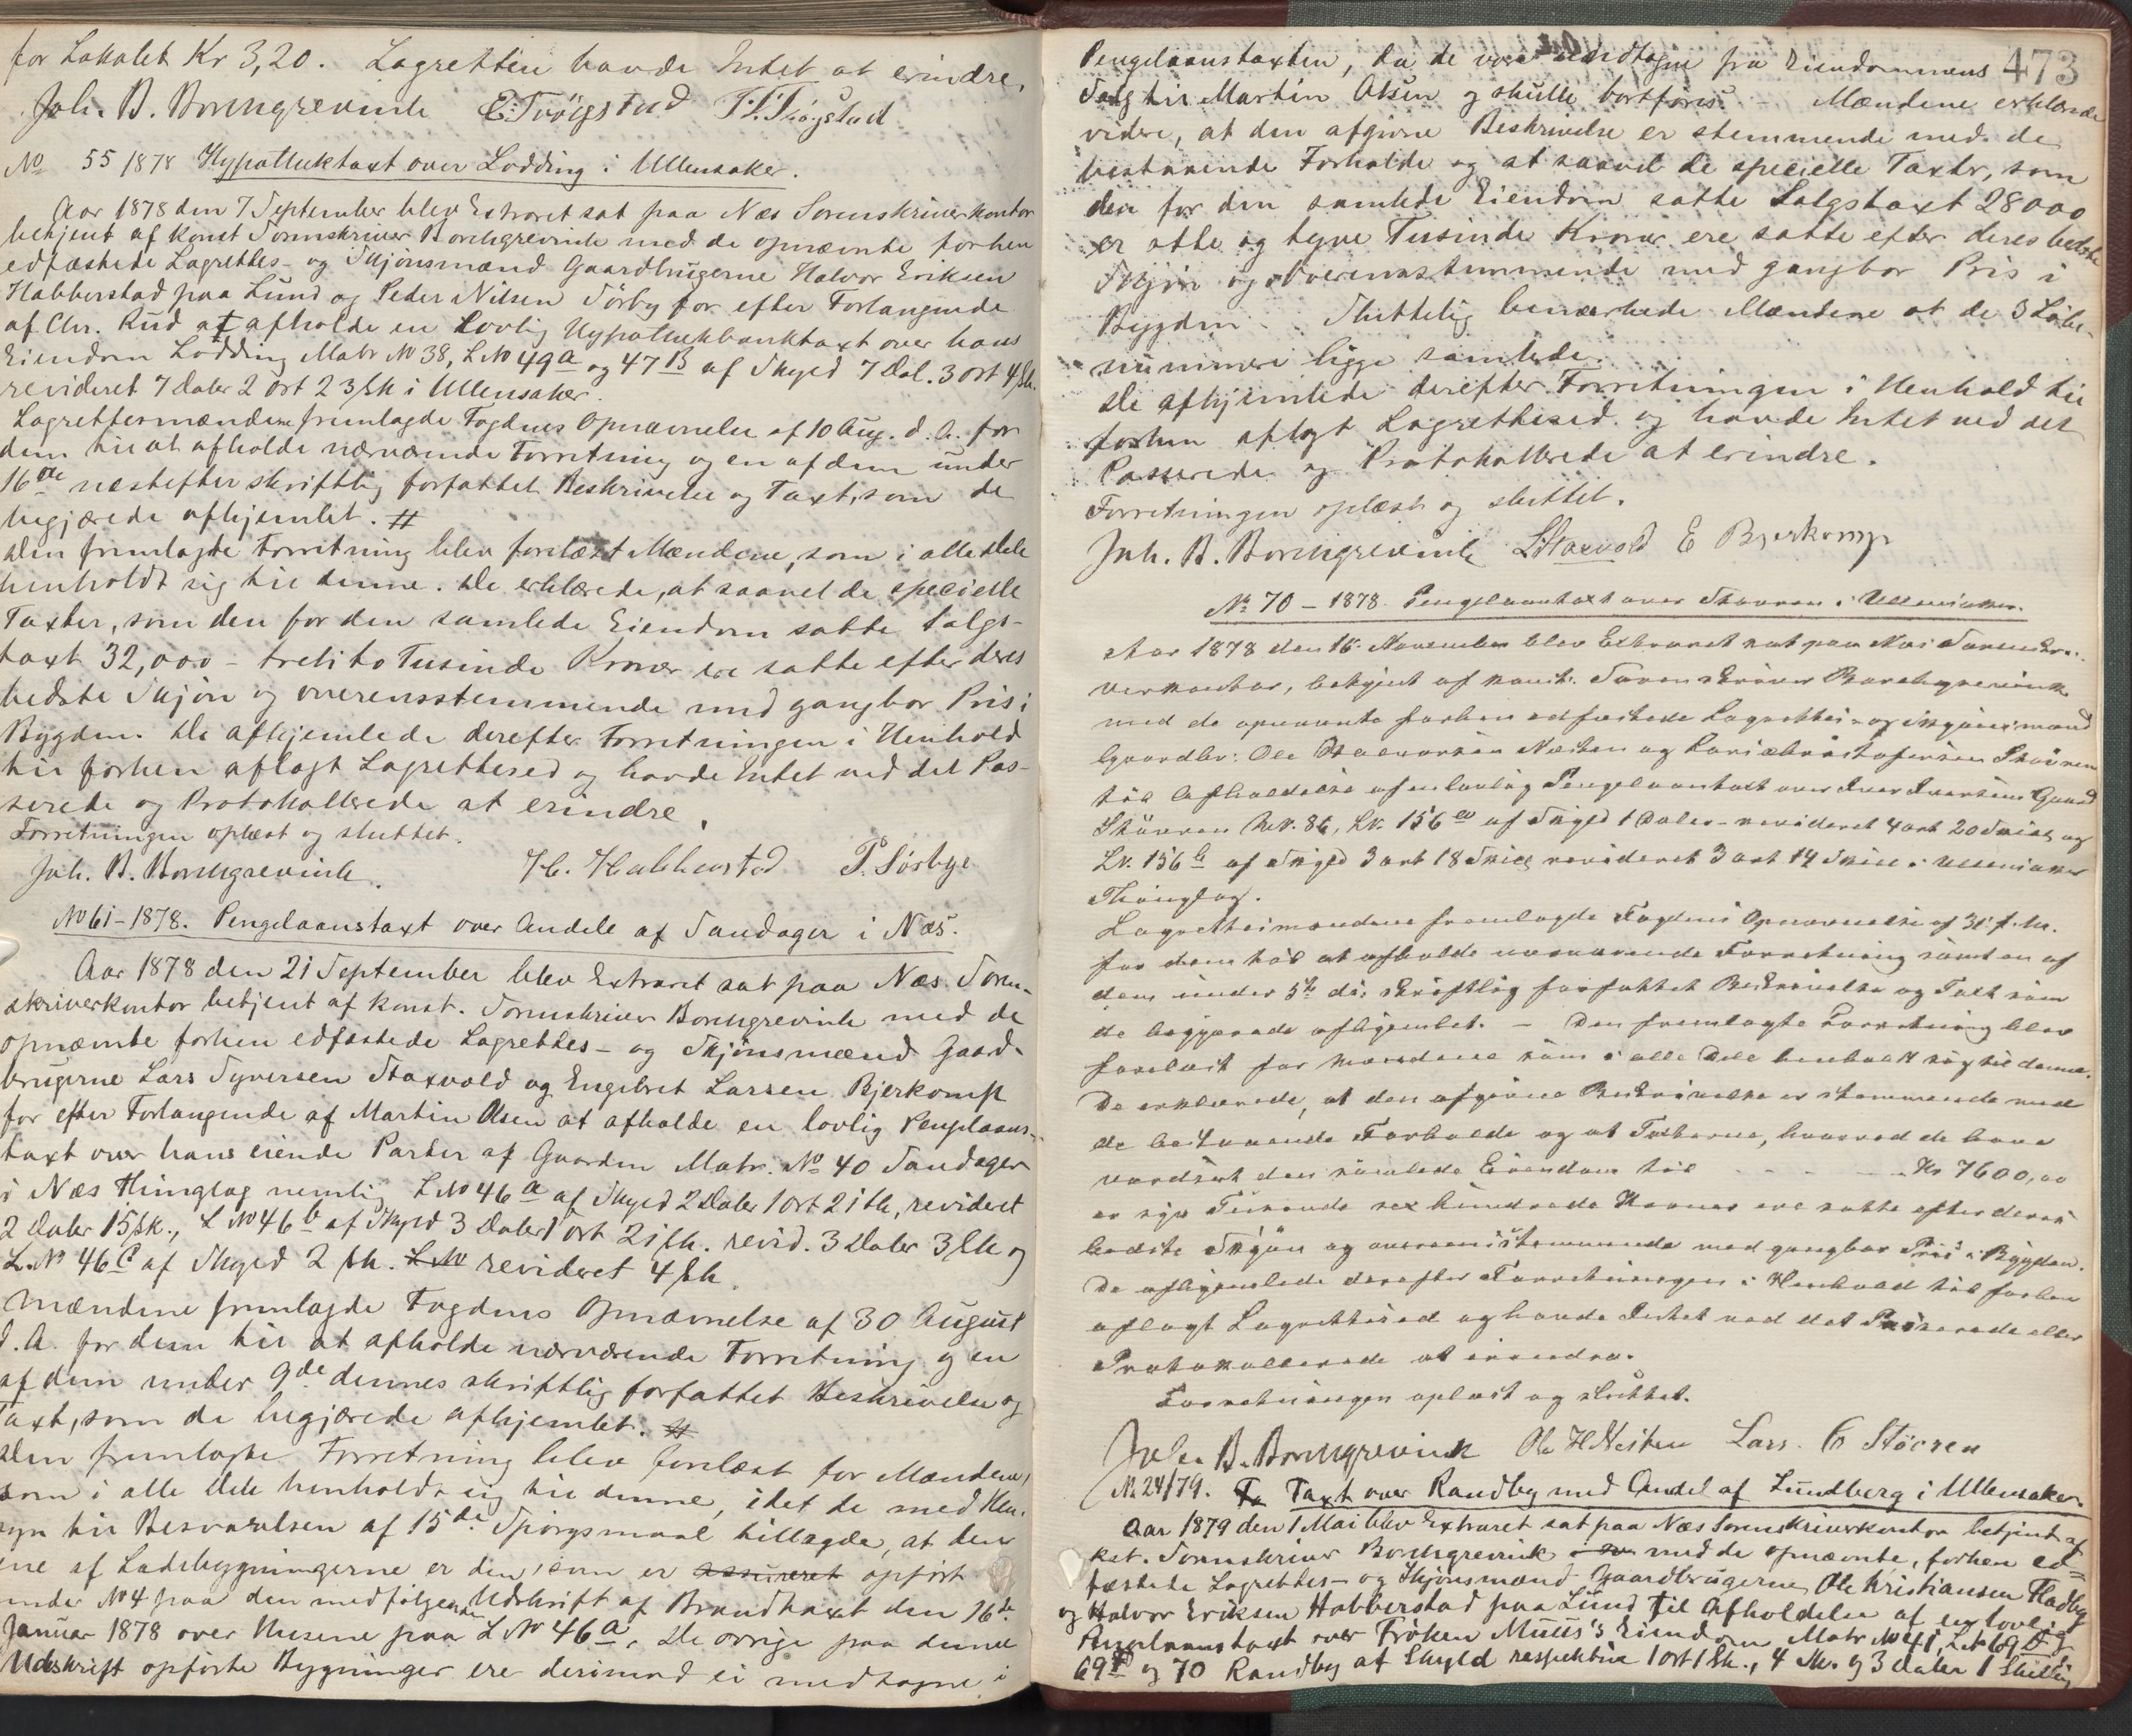 for Lokalet Kr 3,20. Lagretten havde Intet at erindre,
Joh. B. Borchgrevink E. Trögstad T. T. Trøgstad
No 55 1878 Hypothektaxt over Lodding i Ullensaker.
Aar 1878 den 7 September blev Extraret sat paa Næs Sorenskriverkontor
betjent af Konst Sorenskriver Borchgrevink med de opnævnte forhen
edfæstede Lagrettes- og Skjönsmænd Gaardbrugerne Halvor Eriksen
Habberstad paa Lund og Peder Nilsen Sörby for efter Forlangende
af Chr. Rud at afholde en lovlig Hypothekbanktaxt over hans
Eiendom Lodding Matr No 38, L No 49a og 47B af Skyld 7 Dal. 3 ort 4 sk.
revideret 7 Daler 2 ort 23 sk i Ullensaker.
Lagrettesmændene fremlagde Fogdens Opnævnelse af 10 Aug. d. A. for
dem til at afholde nærværende Forretning og en af dem under
16de næstefter skriftlig forfattet Beskrivelse og Taxt, som de
begjærede afhjemlet. #
Den fremlagte Forretning blev forelæst Mændene, som i alle Dele
henholdt sig til denne. De erklærede, at saavel de specielle
Taxter, som den for den samlede Eiendom satte Salgs-
taxt 32,000 - tretito Tusinde Kroner ere satte efter deres
bedste Skjön og overensstemmende med gangbar Pris i
Bygden. De afhjemlede derefter Forretningen i Henhold
til forhen aflagt Lagrettesed og havde Intet ved det Pas-
serede og Protokollerede at erindre.
Forretningen oplæst og sluttet.
Joh. B. Borchgrevink. H. Habberstad P. Sørbye
No 61-1878. Pengelaanstaxt over Andele af Sandager i Næs.
Aar 1878 den 21 September blev Extraret sat paa Næs Soren-
skriverkontor betjent af konst. Sorenskriver Borchgrevink med de
opnævnte forhen edfæstede Lagrettes- og Skjönsmænd Gaard-
brugerne Lars Syversen Staxvold og Engebret Larsen Bjerkomp
for efter Forlangende af Martin Olsen at afholde en lovlig Pengelaans-
taxt over hans eiende Parter af Gaarden Matr. No 40 Sandager
i Næs Thinglag nemlig L No 46a af Skyld 2 Daler 1 ort 21 sk, revideret
2 Daler 15 sk., L No 46b af Skyld 3 Daler 1 ort 21 sk. revid. 3 Daler 3 sk og
L. No 46C af Skyld 2 sk. L No revideret 4 sk.
Mændene fremlagde Fogdens Opnævnelse af 30 August
d. A. for dem til at afholde nærværende Forretning og en
af dem under 9de dennes skriftlig forfattet Beskrivelse og
Taxt, som de begjærede afhjemlet. #
Den fremlagte Forretning blev forelæst for Mændene,
som i alle Dele henholdt sig til denne, idet de med Hen-
syn til Besvarelsen af 15de Spörgsmaal tillagde, at den
ene af Ladebygningerne er den, som er assureret opfört
under No 4 paa den medfölgende Udskrift af Brandtaxt den 16de
Januar 1878 over Husene paa L No 46a. De övrige paa denne
Udskrift opförte Bygninger ere derimod ei medtagne i
473
Pengelaanstaxten, da de vare undtagne fra Eiendommens
Salg til Martin Olsen og skulle bortföres. - Mændene erklærede
videre, at den afgivne Beskrivelse er stemmende med de
bestaaende Forholde og at saavel de specielle Taxter, som
den for den samlede Eiendom satte Salgstaxt 28000
er otte og tyve Tusinde Kroner ere satte efter deres bedste
Skjön og Overensstemmende med gangbar Pris i
Bygden. Sluttelig bemærkede Mændene at de 3 Löbe-
nummere ligge samlede.
De afhjemlede derefter Forretningen i Henhold til
forhen aflagt Lagrettesed og havde Intet ved det
Passerede og Protokollerede at erindre.
Forretningen oplæst og sluttet.
Joh. B. Borchgrevink L Staxvold E Bjerkomp
No 70 - 1878. Pengelaantaxt over Stavren i Ullensaker.
Aar 1878 den 16 November blev Extraret sat paa Næs Sorenskri-
verkontor, betjent af konst. Sorenskriver Borchgrevink
med de opnævnte forhen edfæstede Lagrettes- og Skjönsmænd
Gaardbr: Ole Halvorsen Nesten og Lars Christofersen Stövren
til Afholdelse af en lovlig Pengelaantaxt over Iver Iversens Gaard
Stövren M. No. 86, L. No. 156a af Skyld 1 Daler - revideret 4 ort 20 Skill og
L. No. 156b af Skyld 3 ort 18 Skill revideret 3 ort 14 Skill i Ullensaker
Thinglag.
Lagrettesmændene fremlagde Fogdens Opnævnelse af 31 f. M.
for dem til at afholde nærværende Forretning samt en af
dem under 5te ds. skriftlig forfattet Beskrivelse og Taxt som
de begjærede afhjemlet. - Den fremlagte Forretning blev
forelæst for Mændene som i alle Dele henholdt sig til denne.
De erklærede, at den afgivne Beskrivelse er stemmende med
de bestaaende Forholde og at Taxterne, hvorved de have
værdsat den samlede Eiendom til - - - Kr 7600,00
er syv Tusende sex hundrede Kroner ere satte efter deres
bedste Skjön og overensstemmende med gangbar Pris i Bygden.
De afhjemlede derefter Forretningen i Henhold til forhen
aflagt Lagrettesed og havde Intet ved det Passerede eller
Protokollerede at erindre.
Forretningen oplæst og sluttet.
Joh. B. Borchgrevink Ole H Nesten Lars C Stövren
No 24/79. Ta Taxt over Randby med Andel af Lundberg i Ullensaker.
Aar 1879 den 1 Mai blev Extraret sat paa Næs Sorenskriverkontor betjent af
kst. Sorenskriver Borchgrevink med de opnævnte, forhen ed=
fæstede Lagrettes- og Skjönsmænd Gaardbrugerne Ole Kristiansen Fladby
og Halvor Eriksen Habberstad paa Lund til Afholdelse af en lovlig
Pengelaanstaxt over Fröken Muus's Eiendom Matr No 41, L No 69
69 og 70 Randby af Skyld respektive 1 ort 1 sk., 4 sk. og 3 Daler 1 Skilling